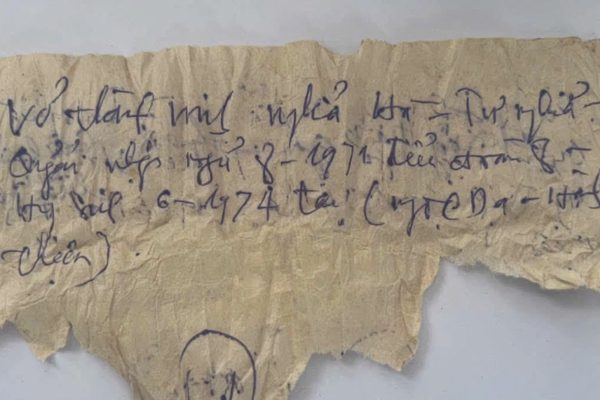 Võ thành minh nghĩa Hà - Tư nghĩa -
Quảng nhập ngũ 8-1971 Tiểu đoàn 8 -
Hy sinh 6-1974 tại (
thiện).